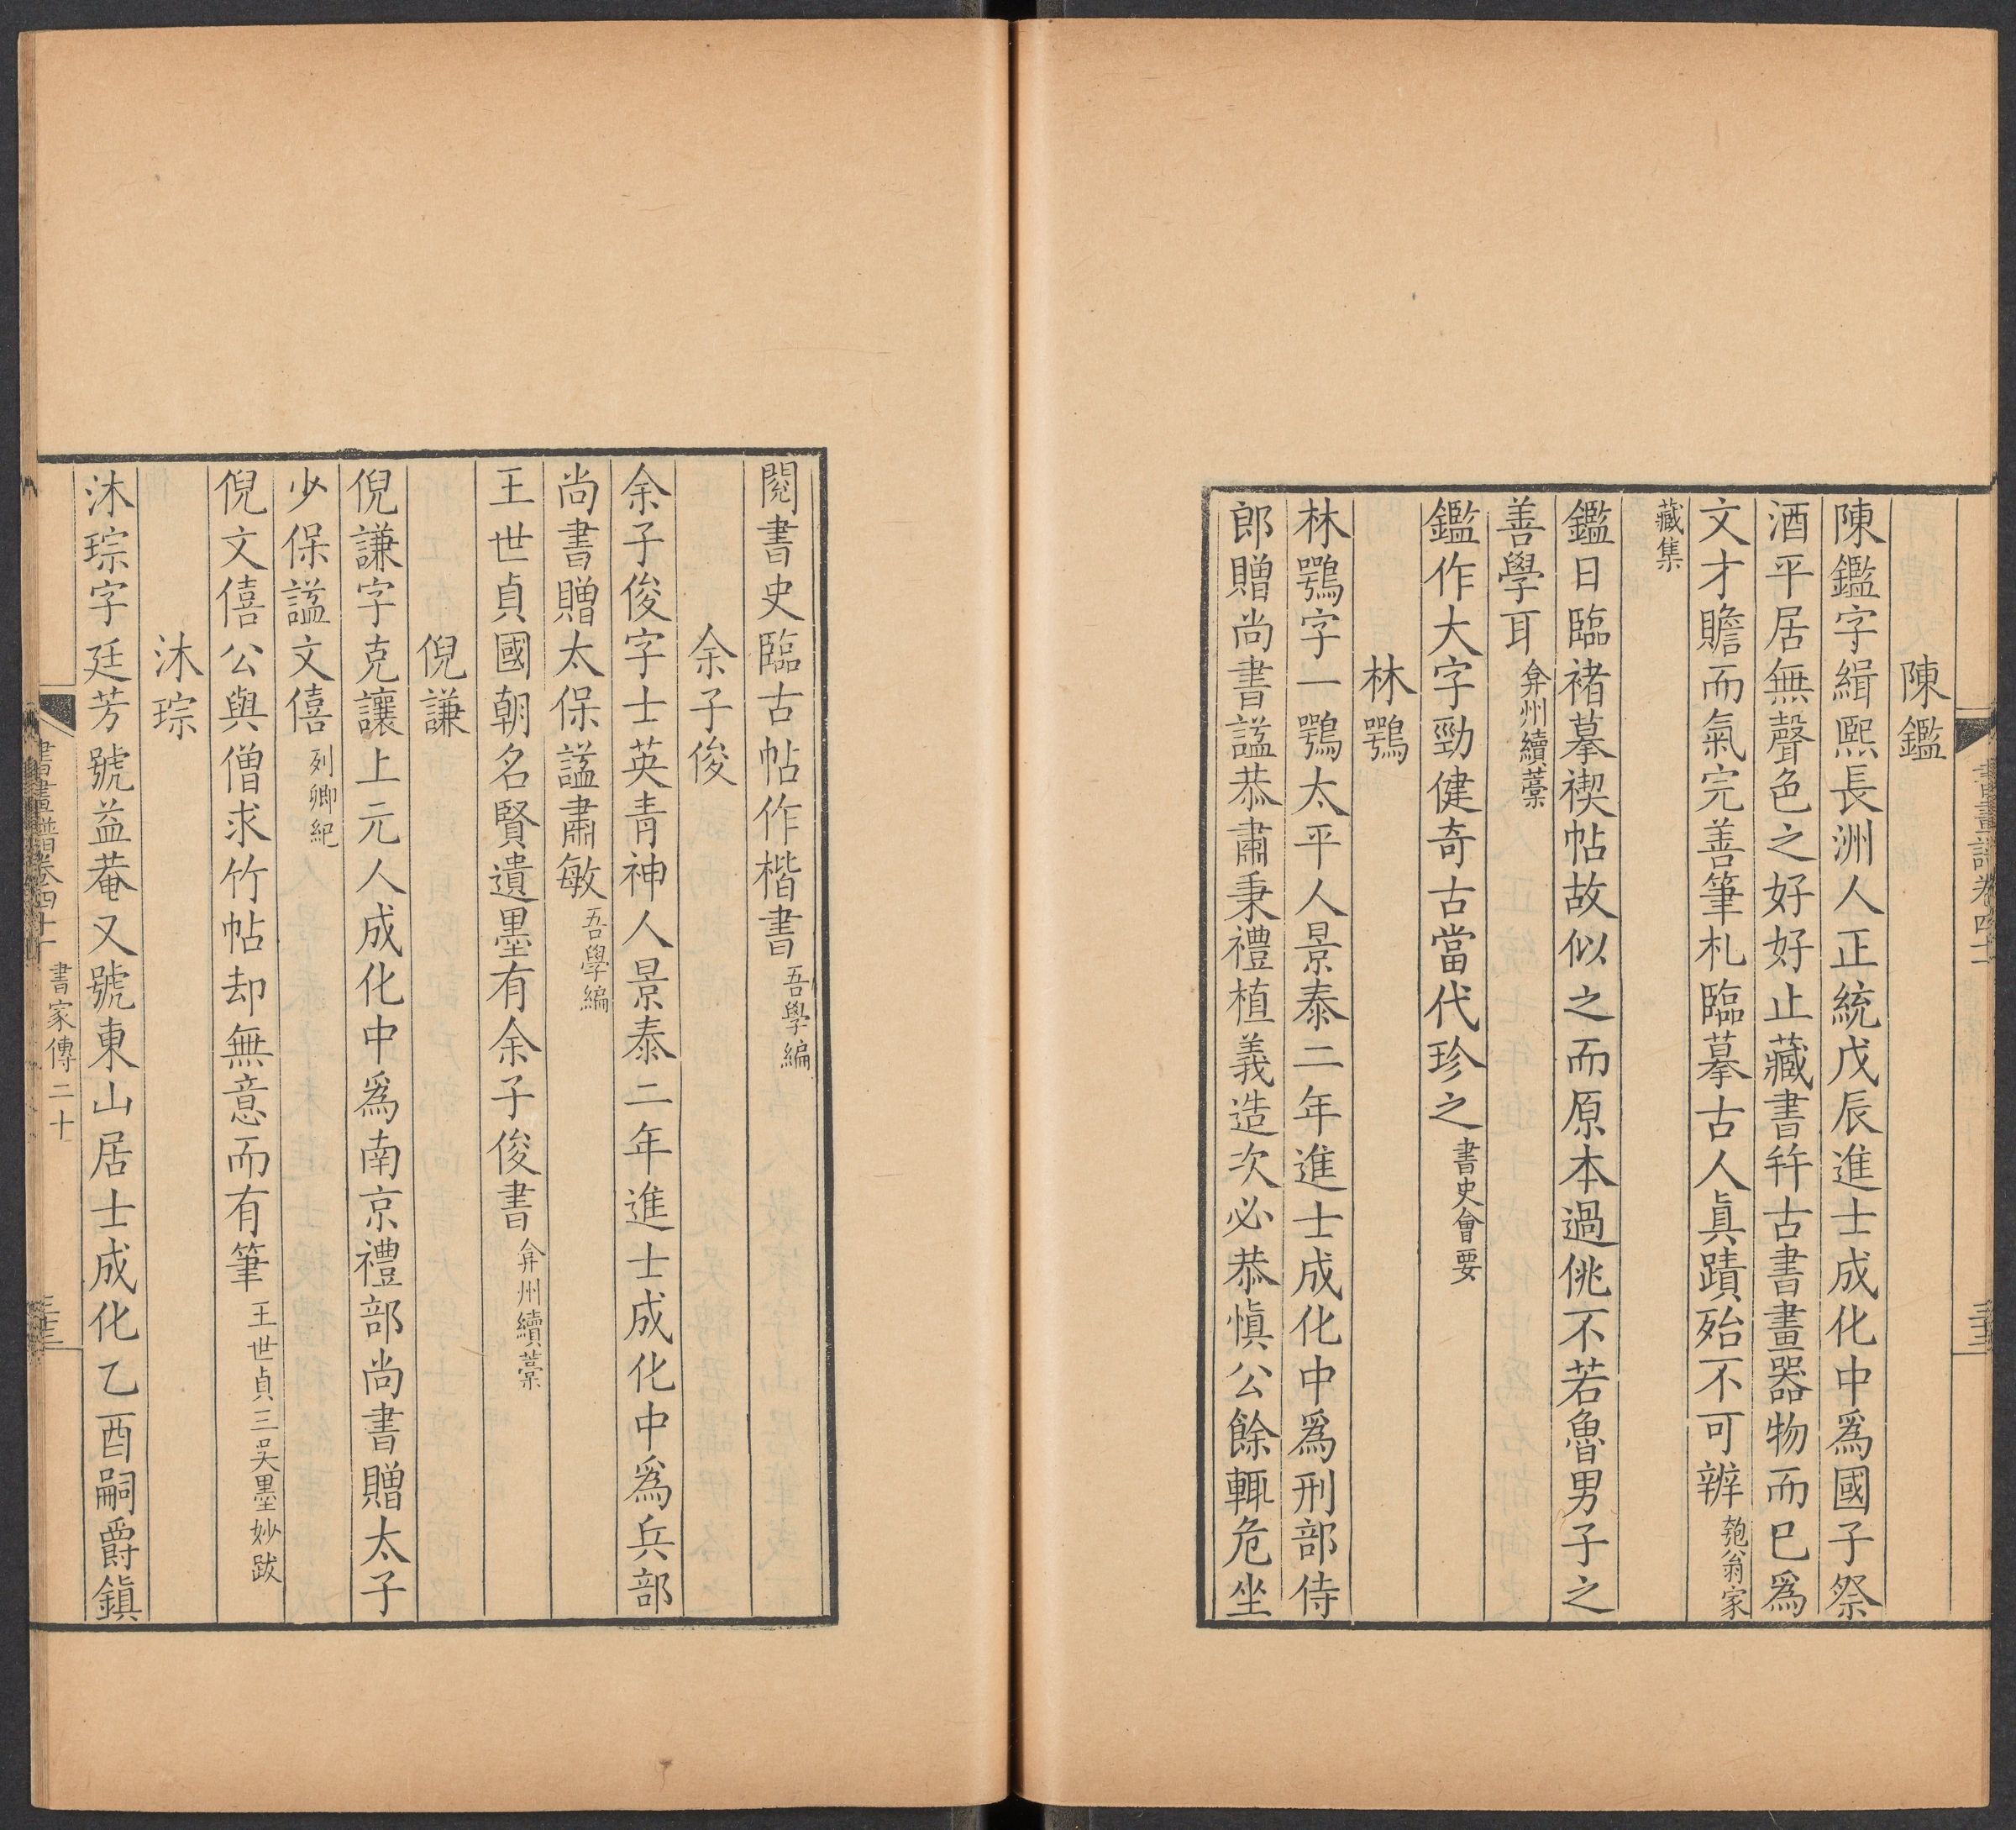 陳鑑
陳鑑字緝熙長洲人正統戊辰進士成化中爲國子祭
酒平居無聲色之好好止藏書幷古書畫器物而已爲
文才贍而氣完善筆札臨摹古人眞蹟殆不可辨匏翁家
藏集
鑑日臨褚摹禊帖故似之而原本過佻不若魯男子之
善學耳弇州續藁
鑑作大字勁健奇古當代珍之書史會要
林鶚
林鶚字一鶚太平人景泰二年進士成化中爲刑部侍
郎贈尚書謚恭肅秉禮植義造次必恭愼公餘輒危坐
閱書史臨古帖作楷書吾學編
余子俊
余子俊字士英青神人景泰二年進士成化中爲兵部
尚書贈太保謚肅敏吾學編
王世貞國朝名賢遺墨有余子俊書弇州續藁
倪謙
倪謙字克讓上元人成化中爲南京禮部尚書贈太子
少保謚文僖列卿紀
倪文僖公與僧求竹帖却無意而有筆王世貞三吴墨妙跋
沐琮
沐琮字廷芳號益菴又號東山居士成化乙酉嗣爵鎭
書畫譜卷四十一 書家傳二十